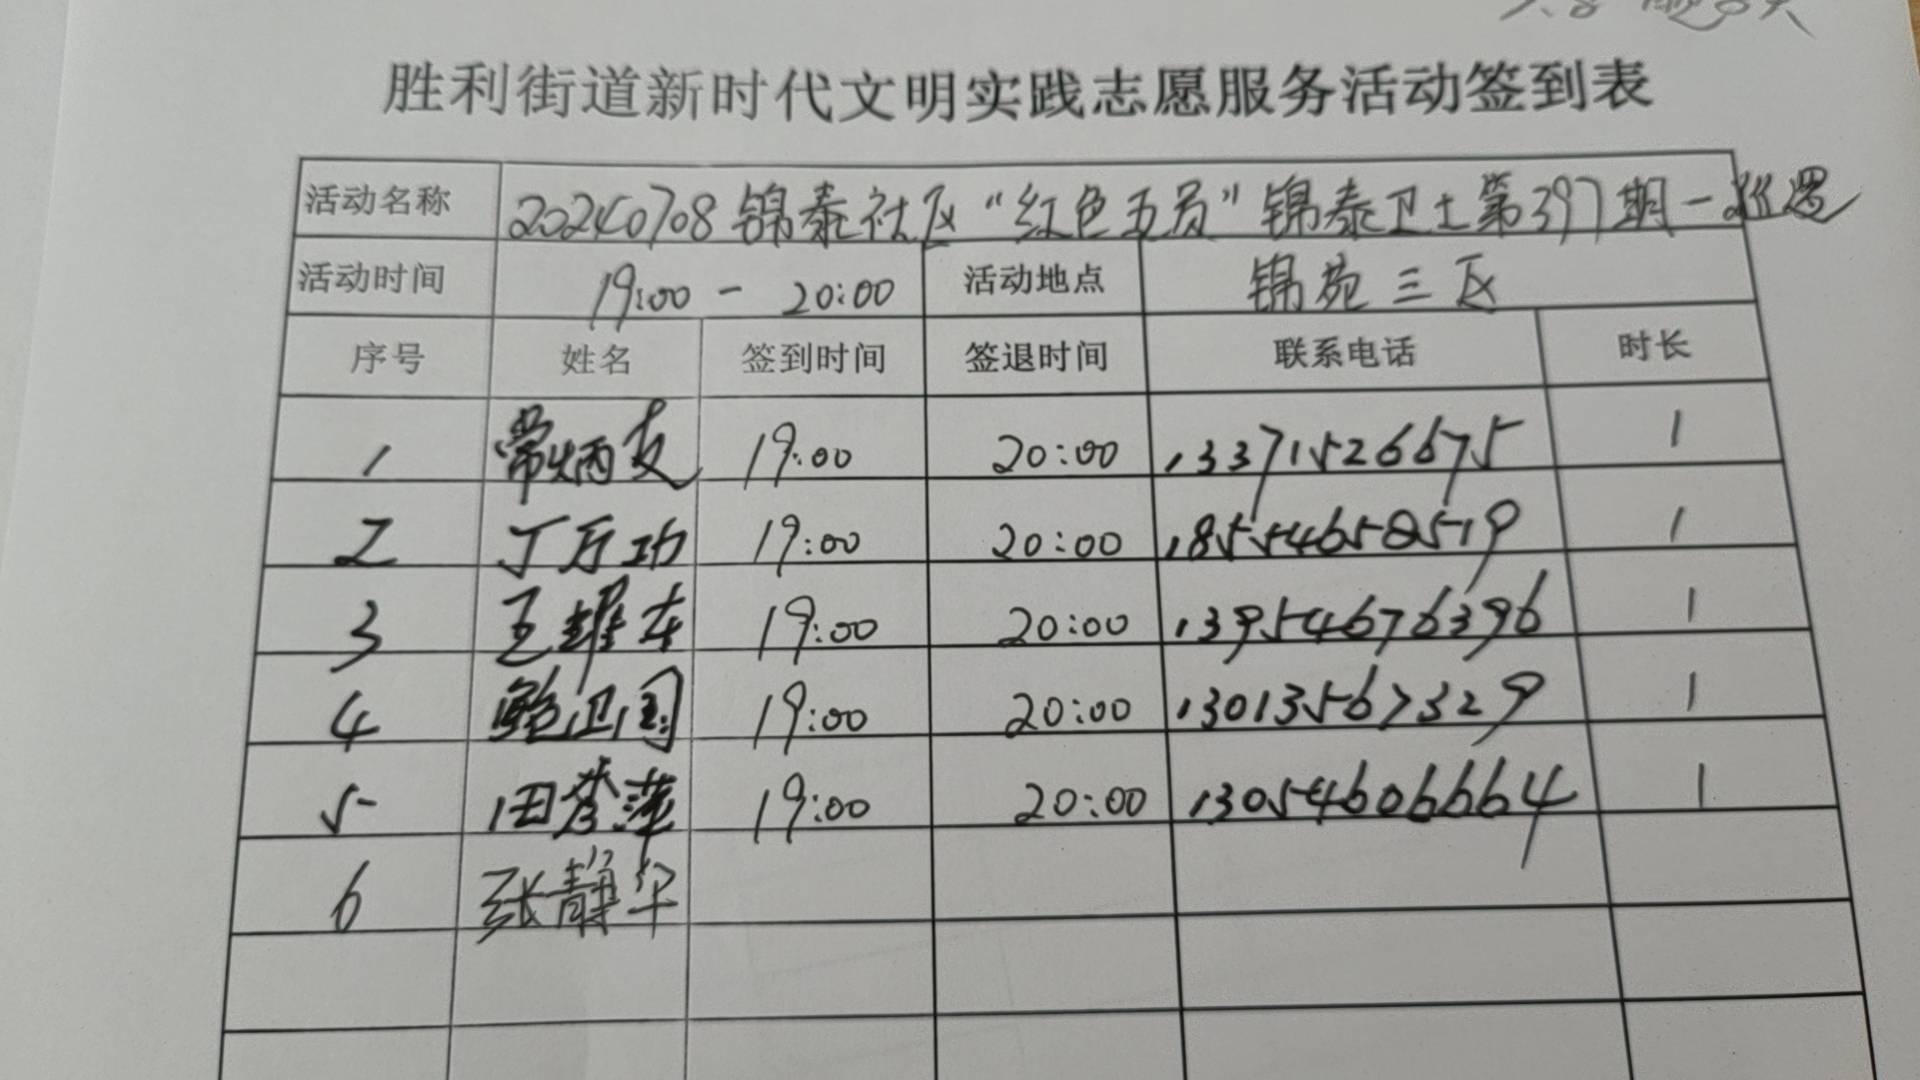 胜利街道新时代文明实践志愿服务活动签到表
活动名称 20240708锦泰社区“红色五员”锦泰卫士第397期一巡逻
活动时间 19:00 - 20:00 活动地点 锦苑三区
序号 姓名 签到时间 签退时间 联系电话 时长
1 常炳友 19:00 20:00 13371526675 1
2 丁万功 19:00 20:00 18554658519 1
3 王耀东 19:00 20:00 13954676396 1
4 鲍卫国 19:00 20:00 13013567329 1
5 田秀萍 19:00 20:00 13054606664 1
6 张静华